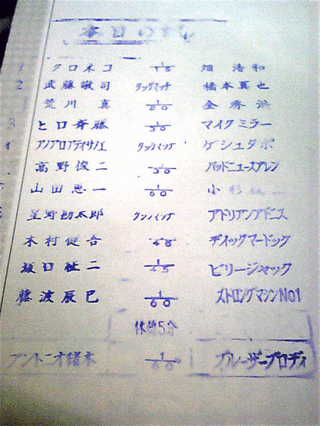 本日の
1 クロネコ 1/15 畑 浩和
2 武藤敬司 タッグマッチ 橋本真也
荒川 真 1/20 金秀洪
3 ヒロ斉藤 1/30 マイクミラー
タッグマッチ ゲシュタポ
高野俊二 1/30 バッドニュースアレン
山田恵一 1/60 小杉
星野勘太郎 アドリアンアドニス
木村健吾 1/45 デイックマードック
坂口征二 1/45 ビリージャック
藤波辰巳 1/60 ストロングマシンNO1
休憩5分
アントニオ猪木 1/60 ブルーザーブロディ